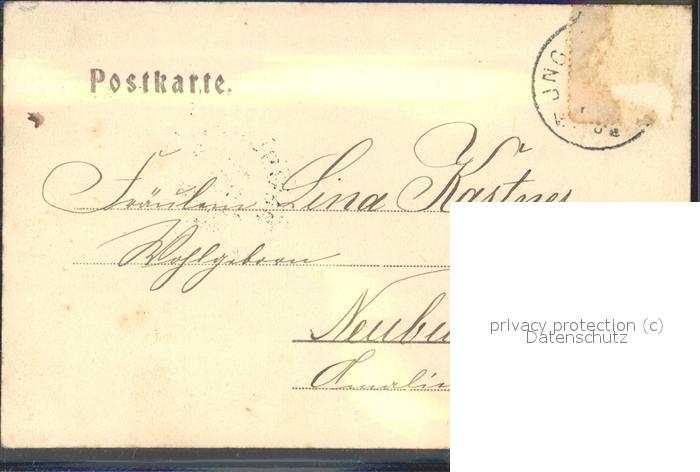 Postkarte.
JNG
Fräulein Lina Kastner
Wohlgeboren
Neubu
Amalie
privacy protection (c)
Datenschutz